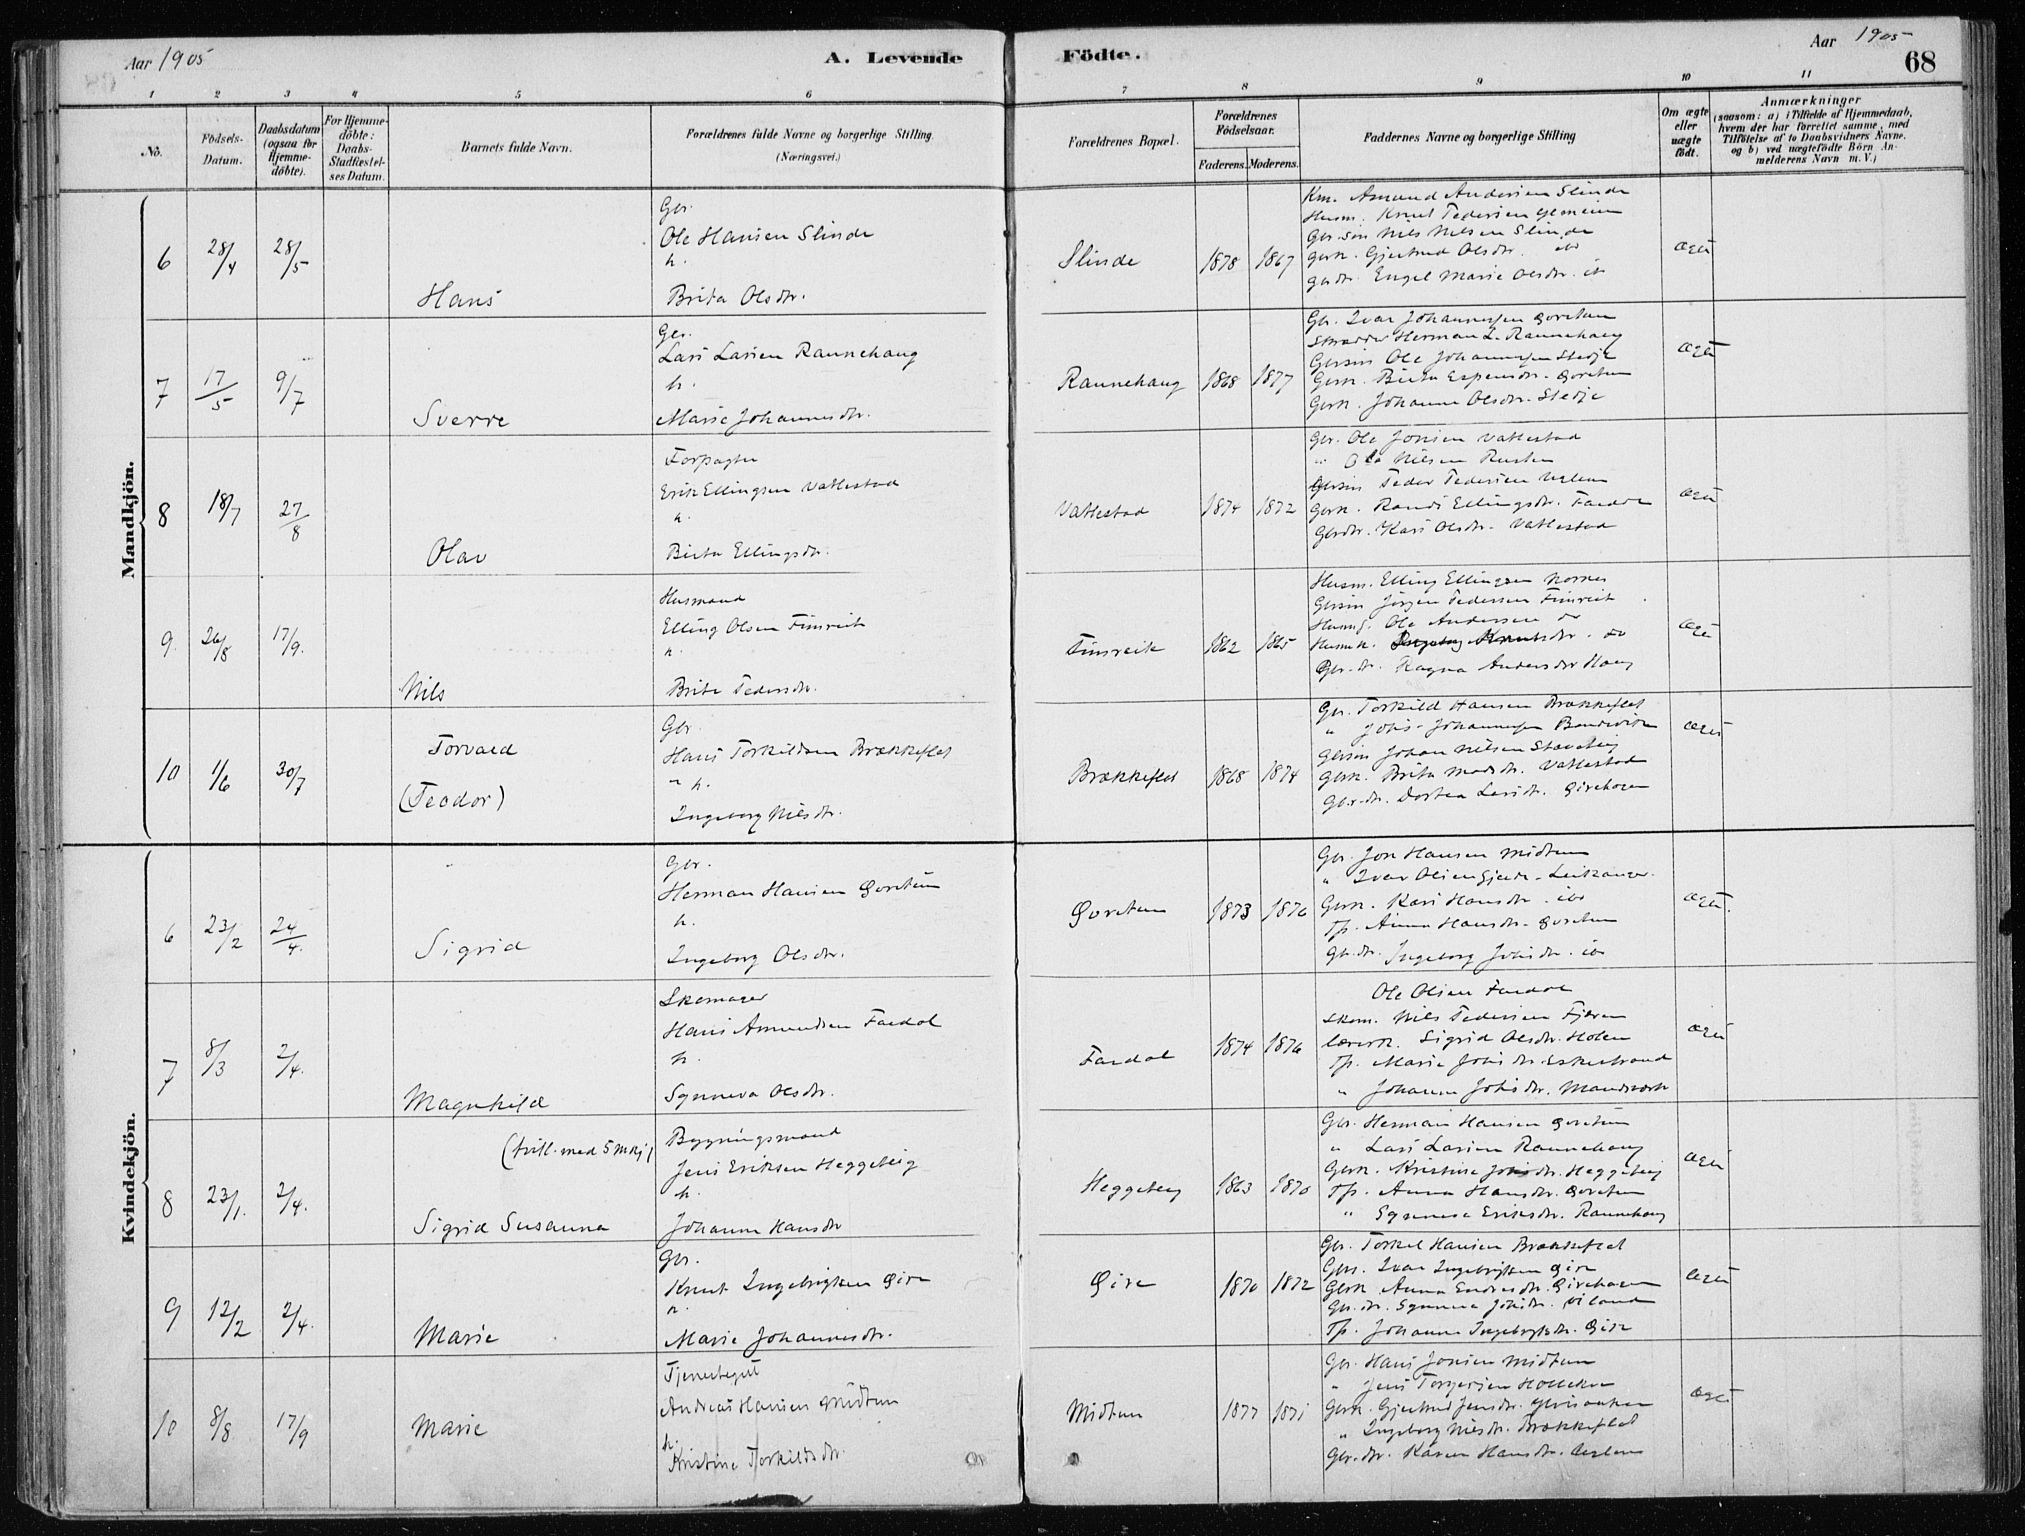 Aar 1905
A. Levende Födte.
Aar 1905
68
1 2 3 4 5 6 7 8 9 10 11
No.
Födsels-Datum.
Daabsdatum (ogsaa for Hjemme-döbte).
For Hjemme-döbte: Daabs-Stadfæstel-ses Datum.
Barnets fulde Navn.
Forældrenes fulde Navne og borgerlige Stilling. (Næringsvei.)
Forældrenes Bopæl.
Forældrenes Födselsaar.
Faderens. Moderens.
Faddernes Navne og borgerlige Stilling
Om ægte eller uægte födt.
Anmærkninger
(saasom: a) i Tilfælde af Hjemmedaab, hvem der har forrettet samme, med Tilföielse af to Daabsvidners Navne, og b) ved uægtefödte Börn Anmelderens Navn m. V.)
Mandkjön.
6 28/4 28/5 Hans
Gbr.
Ole Hansen Slinde
h.
Brita Olsdtr.
Slinde 1878 1867
Km. Amund Andersen Slinde
Husm. Knut Pedersen
Gbr.søn Nils Nilsen Slinde
Gbrk. Gjertrud Olsdtr. ibd
Gbrdtr. Engel Marie Olsdtr. ib
Ægte
7 17/5 9/7 Sverre
Gbr.
Lars Larsen Rannehaug
h.
Marie Johannesdtr.
Rannehaug 1868 1877
Gbr. Ivar Johannessen Gvretun
Skrædder Herman L. Rannehaug
Gbrsøn Ole Johannessen Stedje
Gbrk. Brita Espensdtr. Gvretun
Gbrk. Johanne Olsdtr. Stedje
Ægte
8 18/7 27/8 Olav
Forpagter
Erik Ellingsen Vatlestad
h.
Brita Ellingsdtr.
Vatlestad 1874 1872
Gbr. Ole Jonsen Vatlestad
" Ole Nilsen Rusten
Gbrsøn Peder Pedersen
Gbrk. Randi Ellingsdtr. Fardal
Gbrdtr. Kari Olsdtr. Vatlestad
Ægte
9 26/8 17/9. Nils
Husmand
Elling Olsen Fimreite
h.
Brite Pedersdtr.
Fimreite 1862 1865
Husm. Elling Ellingsen Nornes
Gbrsøn Jörgen Pedersen Fimreite
Ole Andersen do
Husmk. Ingeborg Knutsdtr. do
Gbr.dtr. Ragna Andersdtr Haug
Ægte
10 1/6 30/7 Torvald
(Teodor)
Gbr.
Hans Torkildsen Brækkeflat
h.
Ingeborg Nilsdtr.
Brækkeflat 1868 1874
Gbr. Torkild Hansen Brækkeflat
" Johs. Johannessen
Gbrsøn Johan Nilsen
Gbrk. Brita Madsdtr. Vatlestad
Gbr.dtr. Dortea Larsdtr.
Ægte
Kvindekjön.
6 23/2 24/4. Sigrid
Gbr.
Herman Hansen Gvretun
h.
Ingeborg Olsdtr.
Gvretun 1873 1876
Gbr. Jon Hansen Midtun
" Ivar Olsen Gjerde - Leikanger.
Gbrk. Kari Hansdtr. ibd
Tp. Anna Hansdtr. Gvretun
Gbr.dtr. Ingeborg Johsdtr. ibd
Ægte.
7 8/3 2/4. Magnhild
Skomager
Hans Amundsen Fardal
h.
Synneva Olsdtr.
Fardal 1874 1876
Ole Olsen Fardal
Skom. Nils Pedersen Fjæren
Lærerk. Sigrid Olsdtr. Holen
Tp. Marie Johsdtr. Eskestrand
" Johanne Johsdtr.
Ægte
8 23/1. 2/4. (tvill. med 5 mkj)
Sigrid Susanna
Bygningsmand
Jens Eriksen Heggeteig
h.
Johanne Hansdtr
Heggeteig 1863 1870
Gbr. Herman Hansen Gvretun
" Lars Larsen Rannehaug
Gbrk. Kristine Johsdtr. Heggeteig
Tp. Anna Hansdtr. Gvretun
" Synneva Eriksdtr. Rannehaug
Ægte
9 12/2 2/4. Marie
Gbr.
Knut Ingebrigtsen Gire
h.
Marie Johannesdtr.
Gire 1870 1872
Gbr. Torkel Hansen Brækkeflat
Gbrs. Ivar Ingebrigtsen Gire
Gbrk. Anna Endresdtr.
Gbr.dtr. Synneva Johsdtr.
Tp. Johanne Ingebrigtsdtr. Gire
Ægte
10 8/8 17/9 Marie
Tjenestegut
Andreas Hansen Midtun
h.
Kristine Torkildsdtr.
Midtun 1877 1871
Gbr. Hans Jonsen Midtun
" Jens Torgersen
Gbrk. Gjertrud Jensdtr.
" Ingeborg Nilsdtr. Brækkeflat
Gbr.dtr. Karen Hansdtr.
Ægte